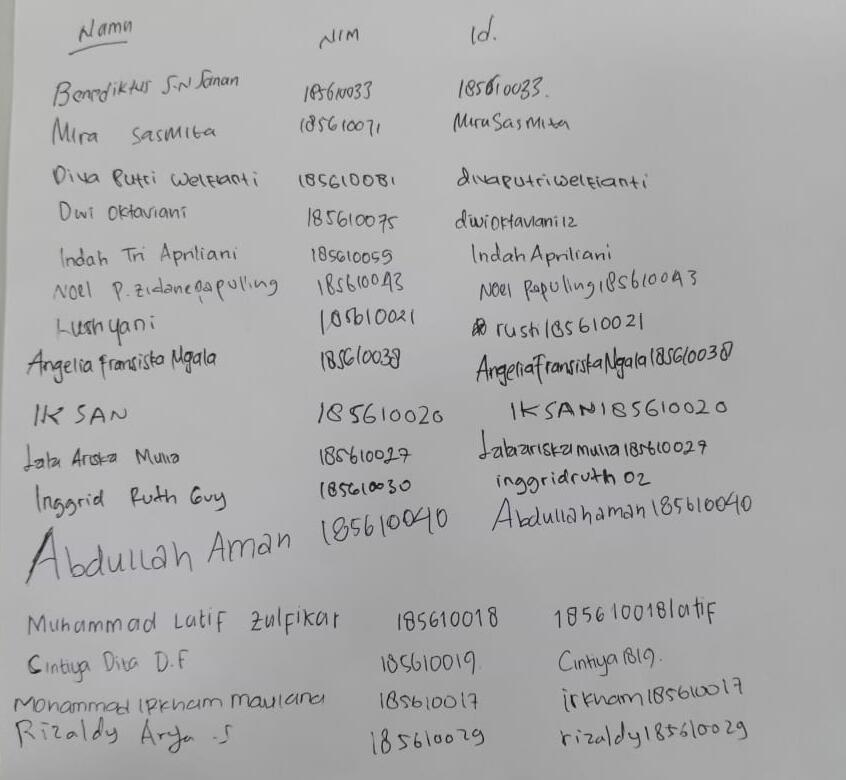 Nama NIM Id.
Benediktus S.N Sanan 185610033 185610033.
Mira Sasmita 185610071 MiraSasmita
Diva Putri Welfianti 185610081 divaputriwelfianti
Dwi Oktaviani 185610075 dwioktaviani12
Indah Tri Apriliani 185610059 IndahApriliani
Noel P. Zidane papuling 185610043 Noel Papuling185610043
Lushyani 185610021 rusti185610021
Angelia Fransiska Ngala 185610038 AngeliaFransiskaNgala185610038
IKSAN 185610020 IKSAN185610020
Ariska Mulia 185610027
Inggrid Ruth Guy 185610030 inggridruth02
Abdullah Aman 185610040 Abdullahaman185610040
Muhammad Latif Zulfikar 185610018 185610018latif
Cintiya Dita D.F 185610019 Cintiya1819.
Mohammad Irkham maulana 185610017 irkham185610017
Rizaldy Arya .S 185610029 rizaldy185610029